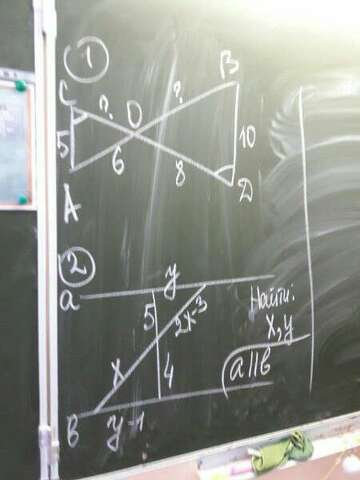 1
C ? O ? B
5 6 8 10
A D
2
a y
5 2x-3
Найти:
x, y
x 4 a||b
b y-1